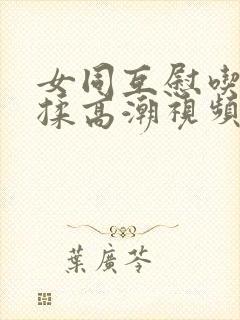 女同互慰喫
揉高潮視頻
葉廣芩